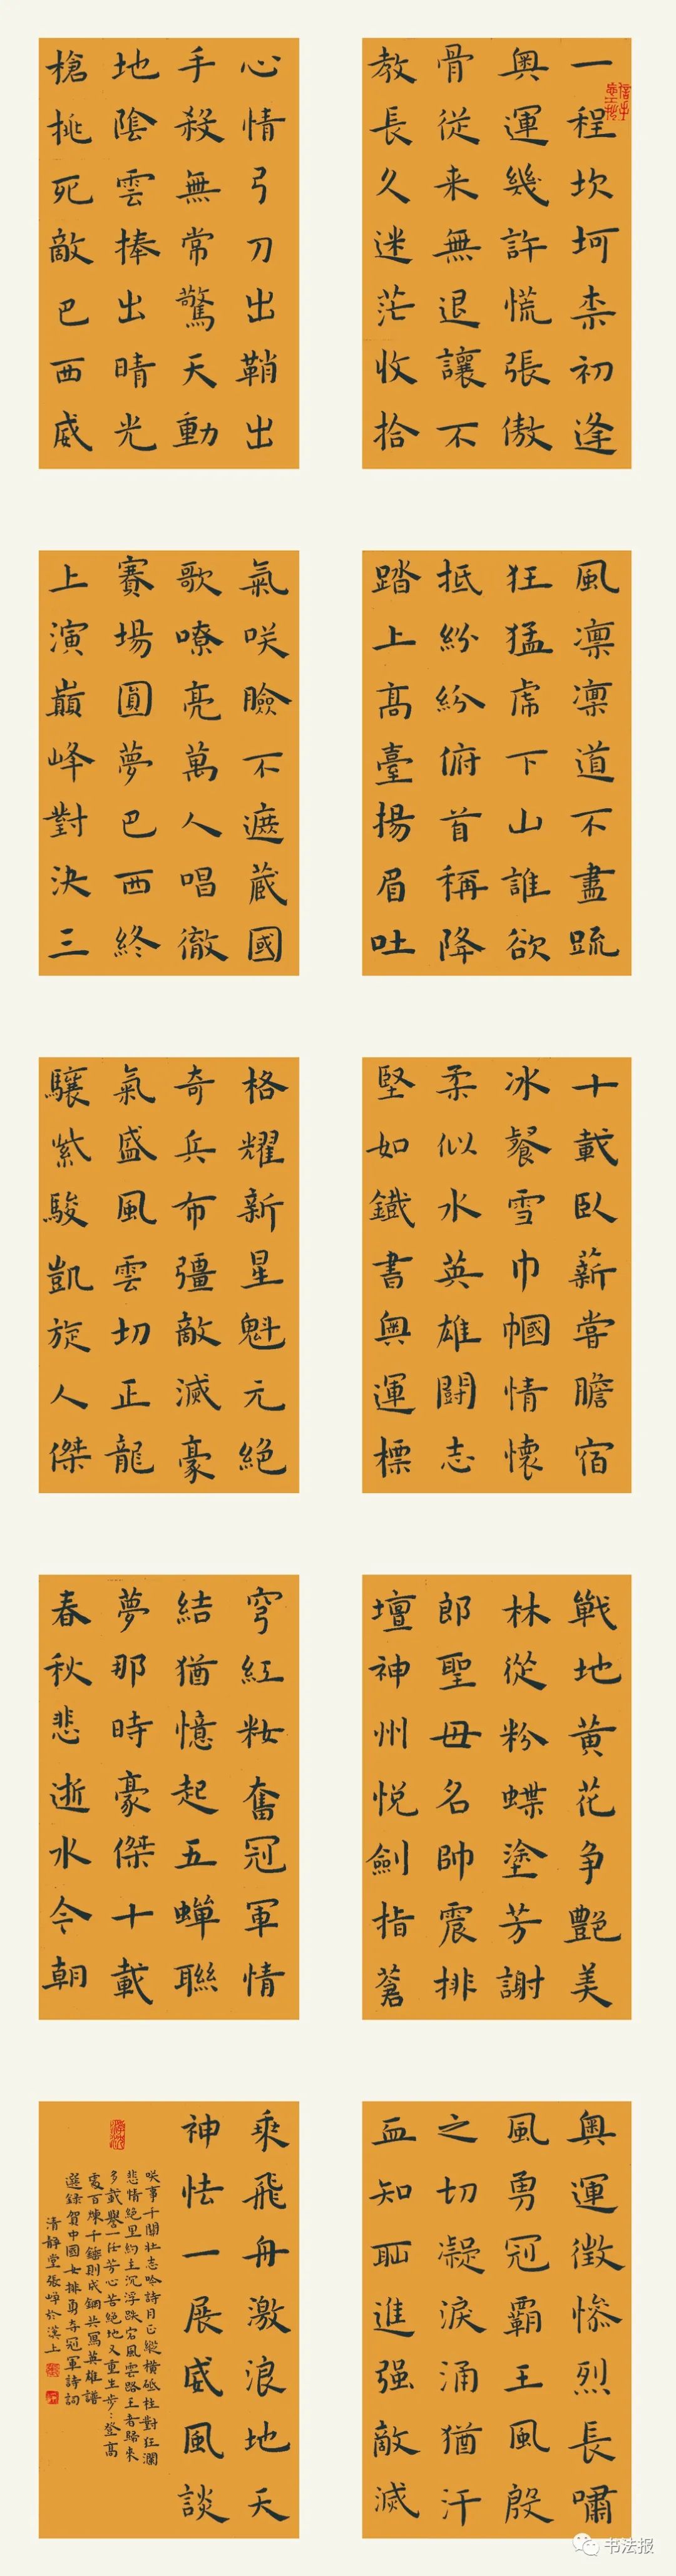 一程坎坷柰初逢
奥運幾許慌張傲
骨從来無退讓不
教長久迷茫收拾
心情弓刀出鞘出
手殺無常驚天動
地陰雲捧出晴光
槍挑死敵巴西威
風凛凛道不盡䟽
狂猛虎下山誰欲
抵紛紛俯首稱降
踏上高臺揚眉吐
氣咲臉不遮蔵國
歌嘹亮萬人唱徹
賽場圓夢巴西終
上演巔峰對決三
十載臥薪嘗膽宿
冰餐雪巾幗情懷
柔似水英雄闘志
堅如鐵書奥運標
格耀新星魁元絶
奇兵布彊敵滅豪
氣盛風雲切正龍
驤紫駿凱旋人傑
戰地黄花争艷美
林從粉蝶塗芳謝
郎聖母名帥震排
壇神州悦劍指蒼
穹紅妝奮冠軍情
結猶憶起五蟬聯
夢那時豪傑十載
春秋悲逝水今朝
奥運徴惨烈長嘯
風勇冠霸王風殷
之切凝淚涌猶汗
血知恥進强敵滅
乘飛舟激浪地天
神怯一展威風談
咲事千關壮志吟詩月正縱横砥柱對狂瀾
悲情絶里約主沉浮跌宕風雲路王者歸来
多載譽一任芳心苦絶地又重生步：登高
處百煉千錘則成鋼共寫英雄譜
選録賀中國女排勇奪冠軍詩詞
清静堂張於漢上
书法报